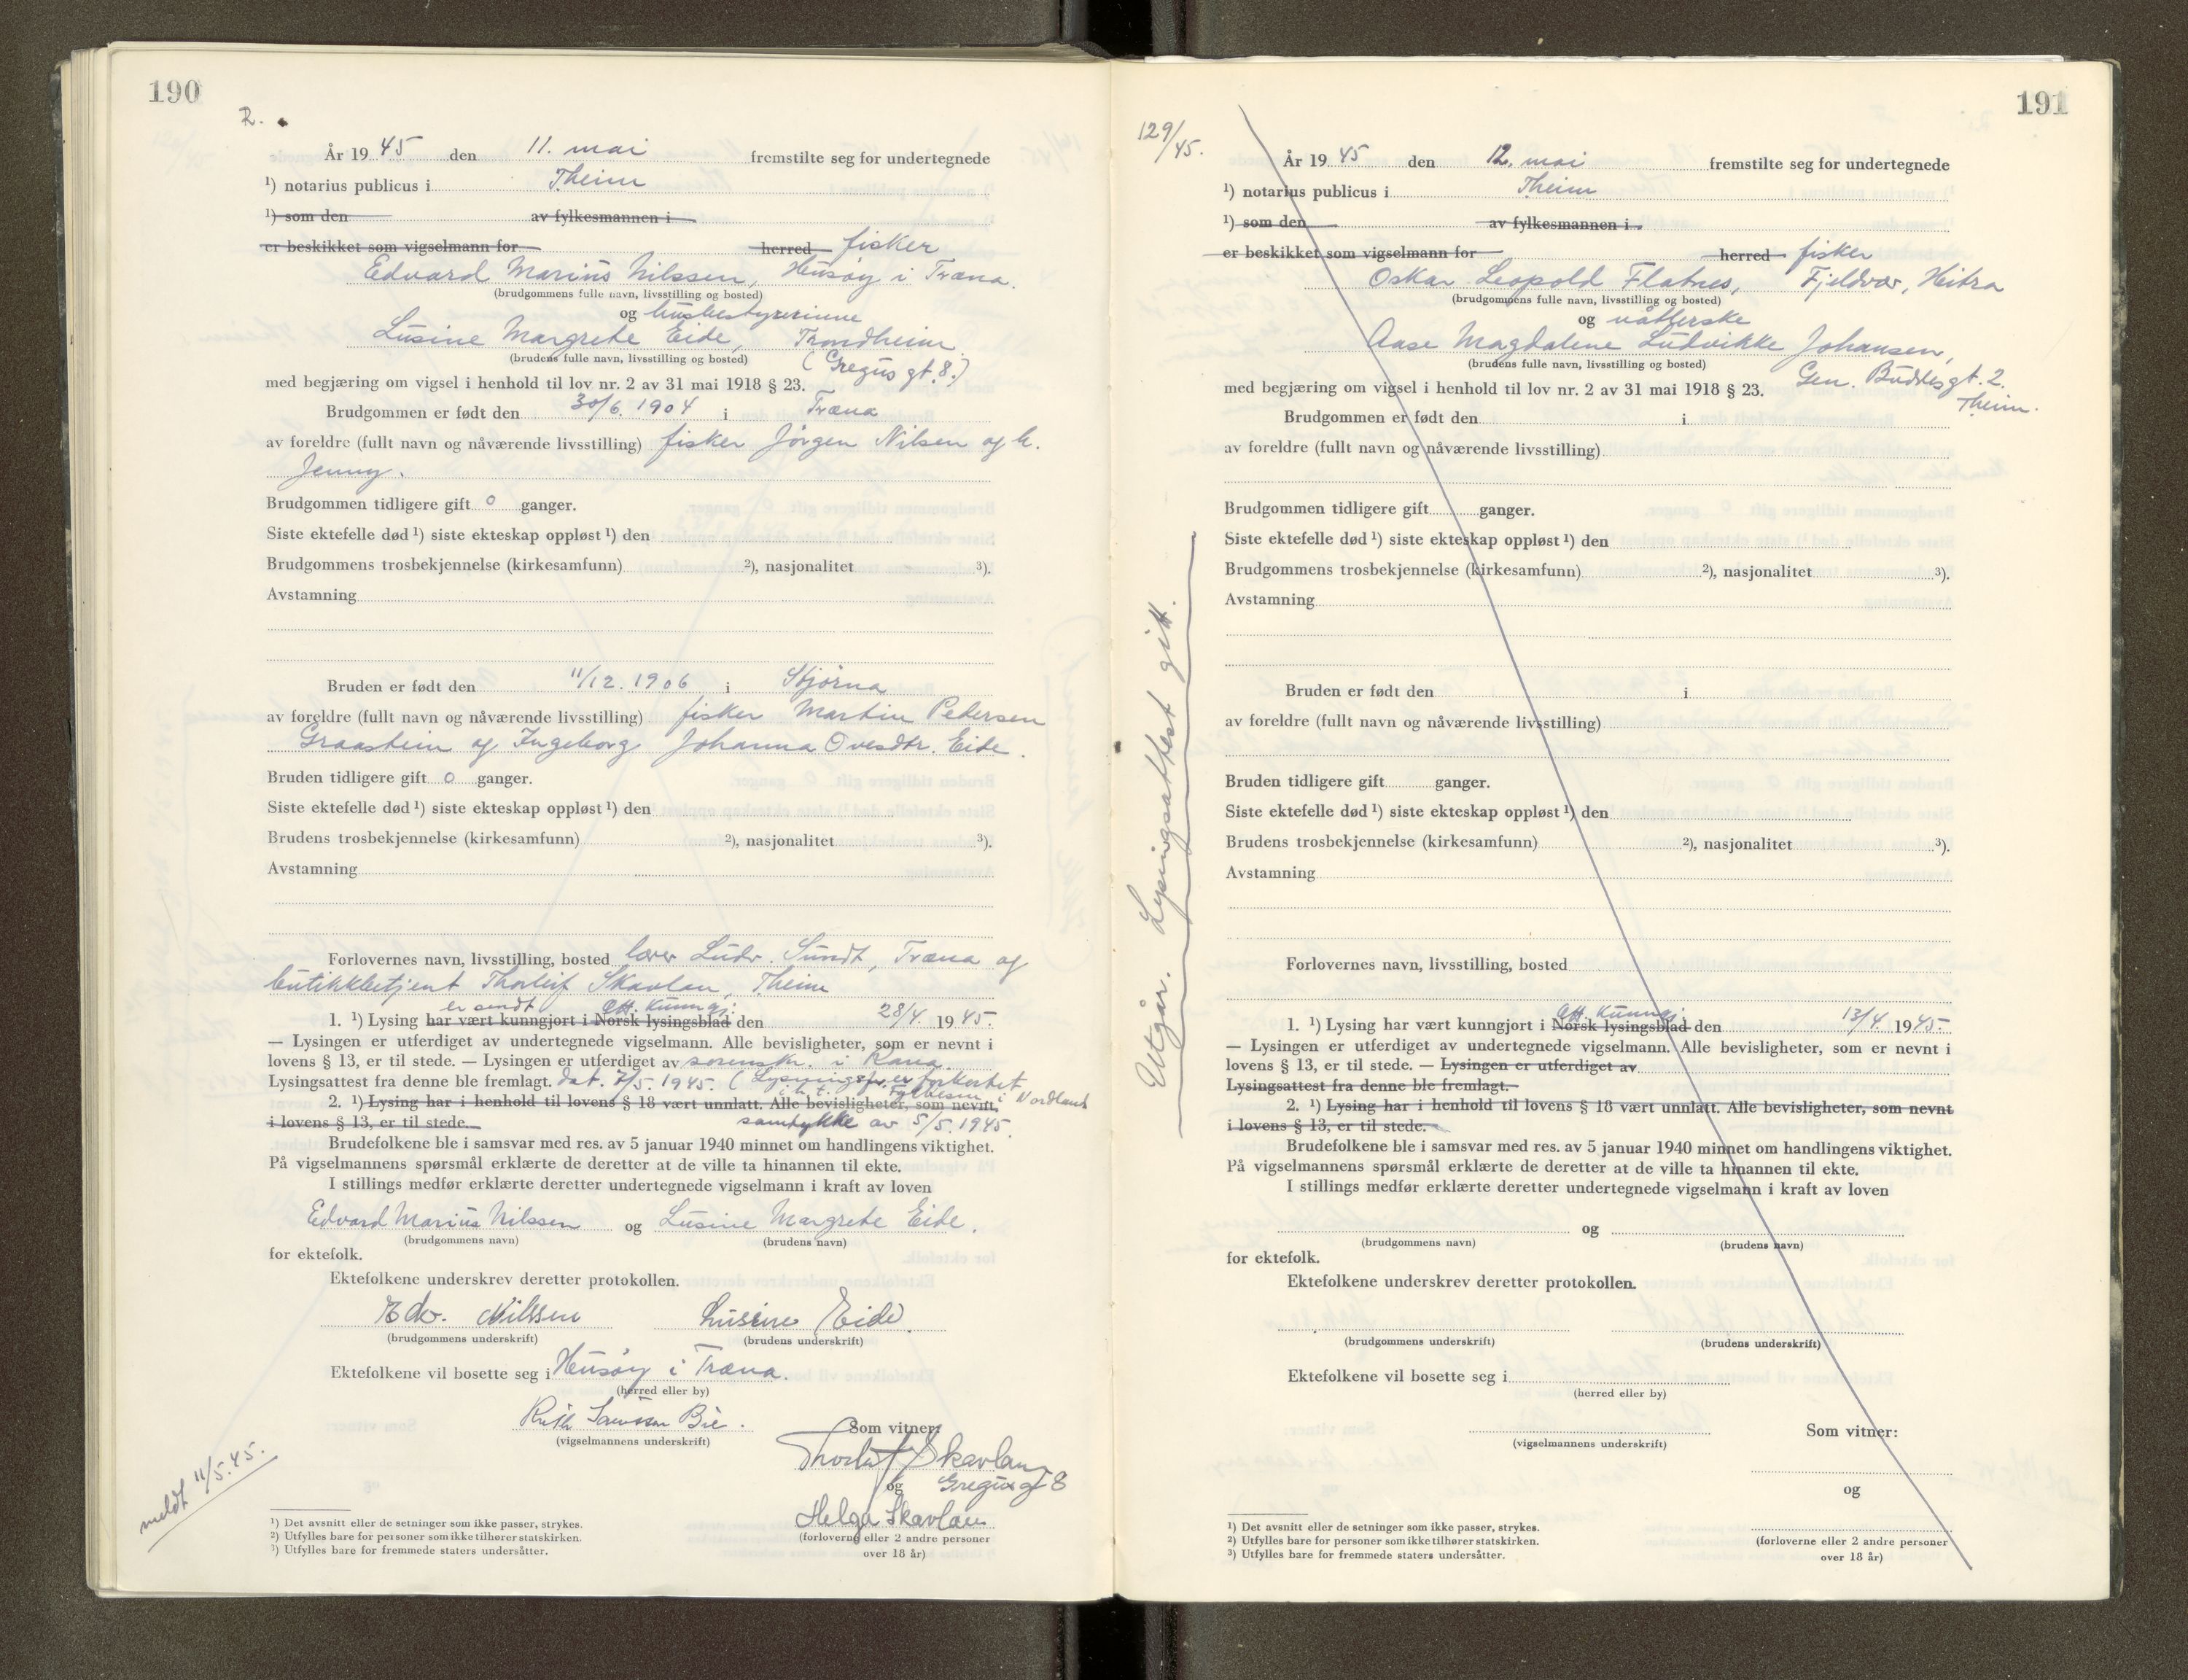 190
R.
År 1945 den 11. mai fremstilte seg for undertegnede
¹) notarius publicus i Theim
¹) som den av fylkesmannen i
er beskikket som vigselmann for herred fisker
Edvard Marius Nilssen, Husøy i Træna.
(brudgommens fulle navn, livsstilling og bosted)
og husbestyrerinne
Lusine Margrete Eide, Trondheim
(brudens fulle navn, livsstilling og bosted) (Gregus gt. 8.)
med begjæring om vigsel i henhold til lov nr. 2 av 31 mai 1918 § 23.
Brudgommen er født den 30/6. 1904 i Træna
av foreldre (fullt navn og nåværende livsstilling) fisker Jörgen Nilsen og h.
Jenny.
Brudgommen tidligere gift 0 ganger.
Siste ektefelle død ¹) siste ekteskap oppløst ¹) den
Brudgommens trosbekjennelse (kirkesamfunn) ²), nasjonalitet ³).
Avstamning
Bruden er født den 11/12. 1906 i Stjørna
av foreldre (fullt navn og nåværende livsstilling) fisker Martin Petersen
Graastein og Ingeborg Johanna Ovesdtr. Eide.
Bruden tidligere gift 0 ganger.
Siste ektefelle død ¹) siste ekteskap oppløst ¹) den
Brudens trosbekjennelse (kirkesamfunn) ²), nasjonalitet ³).
Avstamning
Forlovernes navn, livsstilling, bosted lærer Ludv. Sundt, Træna og
butikkbetjent Thorleif Skavlan, Theim
er sendt Off. kunngj.
1. ¹) Lysing har vært kunngjort i Norsk lysingsblad den 28/4. 1945.
— Lysingen er utferdiget av undertegnede vigselmann. Alle bevisligheter, som er nevnt i
lovens § 13, er til stede. — Lysingen er utferdiget av sorenskr. i Rana.
Lysingsattest fra denne ble fremlagt. dat. 7/5. 1945. (Lysningsfr. er forkortet
i h. t. Fylkesm. i Nordland
2. ¹) Lysing har i henhold til lovens § 18 vært unnlatt. Alle bevisligheter, som nevnt
i lovens § 13, er til stede. samtykke av 5/5. 1945.
Brudefolkene ble i samsvar med res. av 5 januar 1940 minnet om handlingens viktighet.
På vigselmannens spørsmål erklærte de deretter at de ville ta hinannen til ekte.
I stillings medfør erklærte deretter undertegnede vigselmann i kraft av loven
Edvard Marius Nilssen og Lusine Margrete Eide.
(brudgommens navn) (brudens navn)
for ektefolk.
Ektefolkene underskrev deretter protokollen.
Edv. Nilssen Lusine Eide.
(brudgommens underskrift) (brudens underskrift)
Ektefolkene vil bosette seg i Husøy i Træna.
(herred eller by)
Ruth Bie.
(vigselmannens underskrift)
Som vitner:
Thorleif Skavlan
og Gregus gt 8
Helga Skavlan
(forloverne eller 2 andre personer
over 18 år)
meldt 11/5.45.
¹) Det avsnitt eller de setninger som ikke passer, strykes.
²) Utfylles bare for personer som ikke tilhører statskirken.
³) Utfylles bare for fremmede staters undersåtter.
191
129/45.
År 1945 den 12. mai fremstilte seg for undertegnede
¹) notarius publicus i Theim
¹) som den av fylkesmannen i
er beskikket som vigselmann for herred fisker
Oskar Leopold Flatnes, Fjeldvær, Hitra
(brudgommens fulle navn, livsstilling og bosted)
og våtterske
Aase Magdalene Ludvikke Johansen,
(brudens fulle navn, livsstilling og bosted) Gen. Buddesgt. 2.
med begjæring om vigsel i henhold til lov nr. 2 av 31 mai 1918 § 23. Theim.
Brudgommen er født den i
av foreldre (fullt navn og nåværende livsstilling)
Brudgommen tidligere gift ganger.
Siste ektefelle død ¹) siste ekteskap oppløst ¹) den
Brudgommens trosbekjennelse (kirkesamfunn) ²), nasjonalitet ³).
Avstamning
Bruden er født den i
av foreldre (fullt navn og nåværende livsstilling)
Bruden tidligere gift ganger.
Siste ektefelle død ¹) siste ekteskap oppløst ¹) den
Brudens trosbekjennelse (kirkesamfunn) ²), nasjonalitet ³).
Avstamning
Utgår. Lysingsattest gitt.
Forlovernes navn, livsstilling, bosted
Off. Kunngj.
1. ¹) Lysing har vært kunngjort i Norsk lysingsblad den 13/4. 1945.
— Lysingen er utferdiget av undertegnede vigselmann. Alle bevisligheter, som er nevnt i
lovens § 13, er til stede. — Lysingen er utferdiget av
Lysingsattest fra denne ble fremlagt.
2. ¹) Lysing har i henhold til lovens § 18 vært unnlatt. Alle bevisligheter, som nevnt
i lovens § 13, er til stede.
Brudefolkene ble i samsvar med res. av 5 januar 1940 minnet om handlingens viktighet.
På vigselmannens spørsmål erklærte de deretter at de ville ta hinannen til ekte.
I stillings medfør erklærte deretter undertegnede vigselmann i kraft av loven
og
(brudgommens navn) (brudens navn)
for ektefolk.
Ektefolkene underskrev deretter protokollen.
(brudgommens underskrift) (brudens underskrift)
Ektefolkene vil bosette seg i
(herred eller by)
Som vitner:
(vigselmannens underskrift)
og
(forloverne eller 2 andre personer
over 18 år)
¹) Det avsnitt eller de setninger som ikke passer, strykes.
²) Utfylles bare for personer som ikke tilhører statskirken.
³) Utfylles bare for fremmede staters undersåtter.